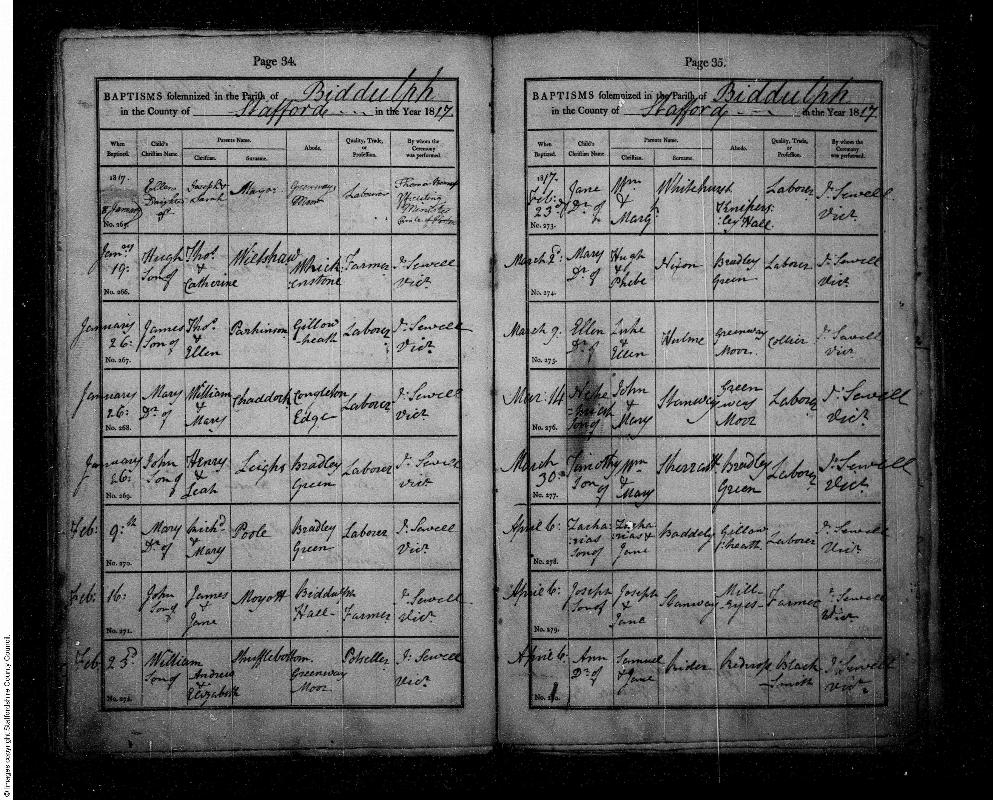 Page 34.
BAPTISMS solemnized in the Parish of Biddulph
in the County of Stafford in the Year 1817.
When Baptized.
Child's Christian Name
Parents Name.
Christian.
Surname.
Abode.
Quality, Trade, or Profession.
By whom the Ceremony was performed.
1817.
Ellen Daughter of
Joseph & Sarah
Mayer
Greenway Moor
Laborer
No. 265.
Janry 19:
Hugh Son of
Thos. & Catherine
Wilshaw
Farmer
J. Sewell Vicr.
No. 266.
January 26:
James Son of
Thos. & Ellen
Parkinson
Gillow heath
Laborer
J. Sewell Vicr.
No. 267.
January 26:
Mary Dr. of
William & Mary
Shaddock
Congleton Edge
Laborer
J. Sewell Vicr.
No. 268.
January 26:
John Son of
Henry & Leah
Leigh
Bradley Green
Laborer
J. Sewell Vicr.
No. 269.
Feb: 9th
Mary Dr. of
Richd. & Mary
Poole
Bradley Green
Laborer
J. Sewell Vicr.
No. 270.
Feb: 16:
John Son of
James & Jane
Moyott
Biddulph Hall
Farmer
J. Sewell Vicr.
No. 271.
Feb 23d.
William Son of
Andrew & Elizabeth
Shufflebottom
Greenway Moor
Potseller
J. Sewell Vicr.
No. 272.
Page 35.
BAPTISMS solemnized in the Parish of Biddulph
in the County of Stafford in the Year 1817.
When Baptized.
Child's Christian Name
Parents Name.
Christian.
Surname.
Abode.
Quality, Trade, or Profession.
By whom the Ceremony was performed.
1817.
Feb: 23d
Jane Dr. of
Wm. & Margt
Whitehurst
Knipersley Hall
Laborer
J. Sewell Vicr.
No. 273.
March 2d.
Mary Dr. of
Hugh & Phebe
Nixon
Bradley Green
Laborer
J. Sewell Vicr.
No. 274.
March 9.
Ellen Dr. of
Luke & Ellen
Hulme
Greenway Moor
Collier
J. Sewell Vicr
No. 275.
Mar. 14
Son of
John & Mary
Stanway
Greenways Moor
Laborer
J. Sewell Vicr
No. 276.
March 30:
Timothy Son of
Wm & Mary
Sherratt
Bradley Green
Laborer
J. Sewell Vicr.
No. 277.
April 6:
Zacharias Son of
Zacharias & Jane
Baddely
Gillow heath
Laborer
J. Sewell Vicr.
No. 278.
April 6:
Joseph Son of
Joseph & Jane
Stanway
Farmer
J. Sewell Vicr
No. 279.
April 6.
Ann Dr. of
Samuel & Jane
Rider
Black Smith
J. Sewell Vicr.
© Images copyright Staffordshire County Council.